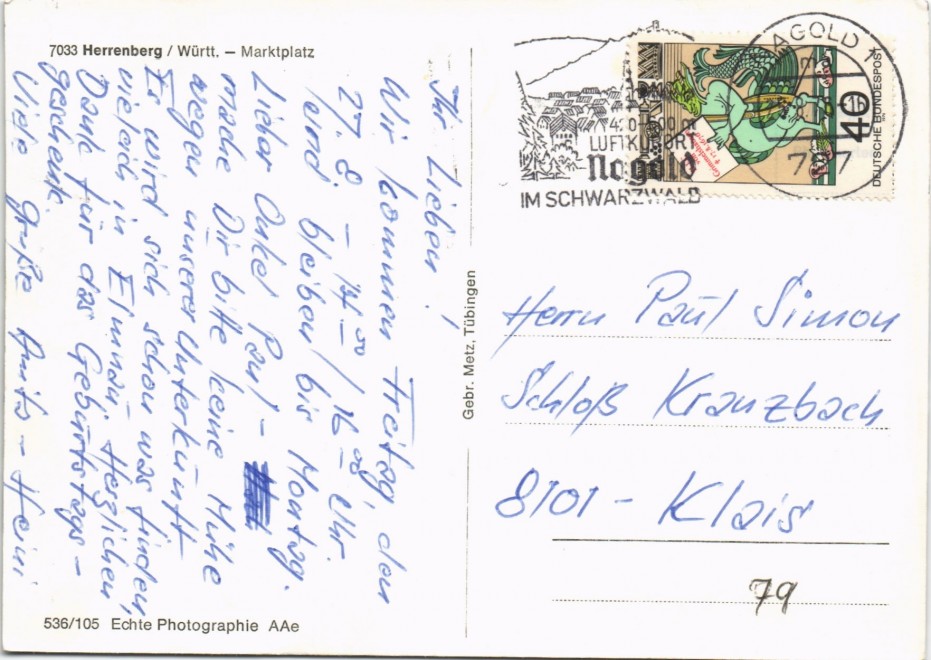 7033 Herrenberg / Württ. — Marktplatz
Ihr Lieben!
Wir kommen Freitag, den
27. 8 – 14 00 / 16 00 Uhr.
und bleiben bis Montag.
Lieber Onkel Paul –
mache Dir bitte keine Mühe
wegen unserer Unterkunft
Es wird sich schon was finden,
vieleich in Elmau. Herzlichen
Dank für das Geburtstags –
geschenk.
Viele Grüße Anita – Heini
536/105 Echte Photographie AAe
Gebr. Metz, Tübingen
400-500 m
LUFTKURORT
Nagold
IM SCHWARZWALD
NAGOLD 1
40
DEUTSCHE BUNDESPOST
Herrn Paul Simon
Schloß Kranzbach
8101 – Klais
79